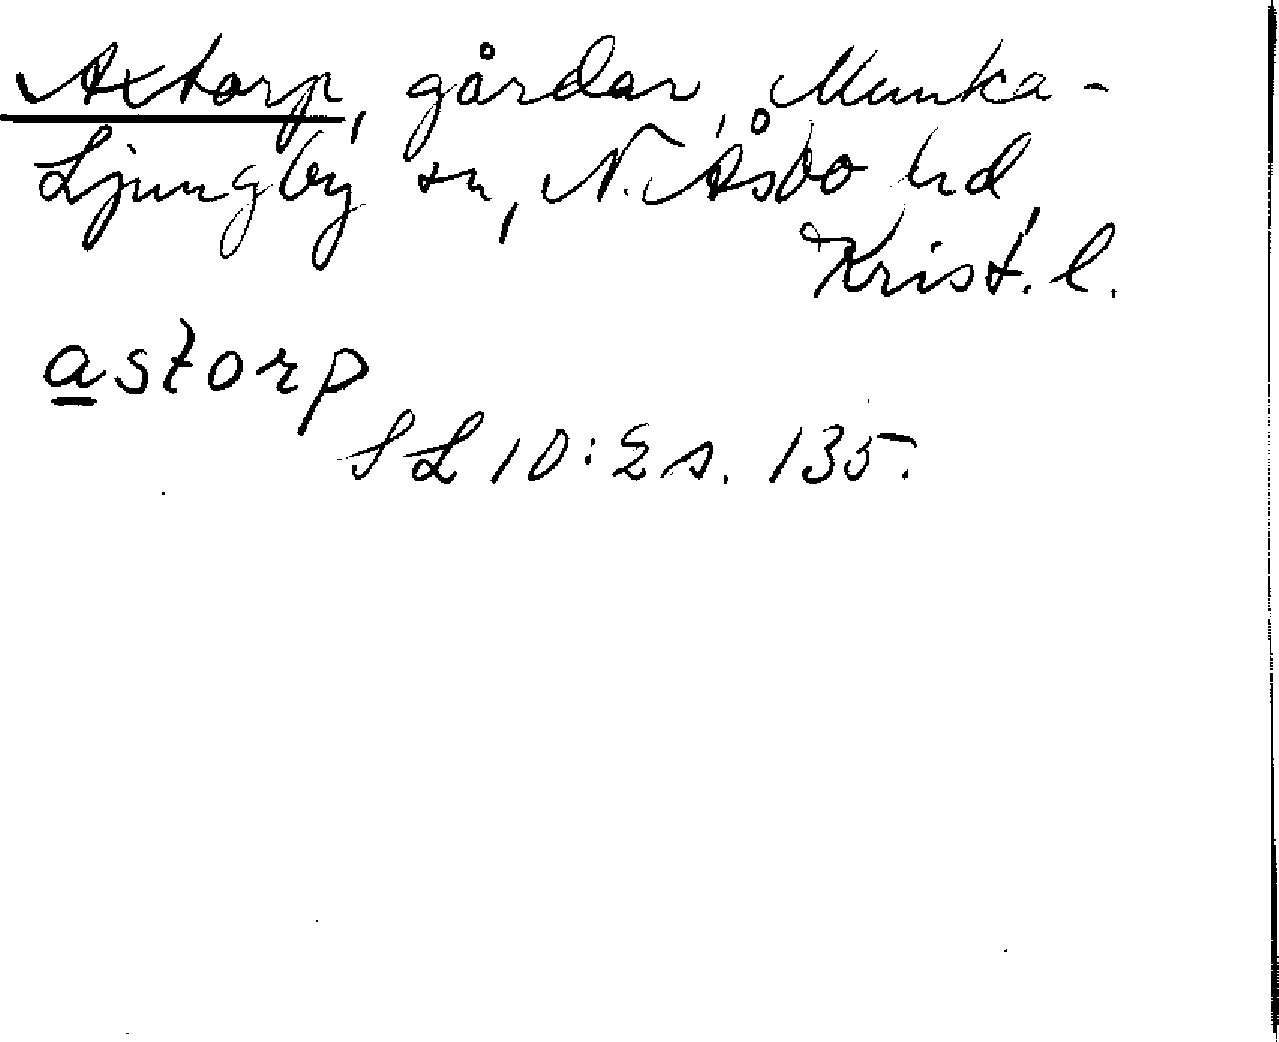 Axtorp, gårdar, Munka-
Ljungby sn, N. Åsbo hd,
Krist. l.
astorp
SL 10:2 s. 135.